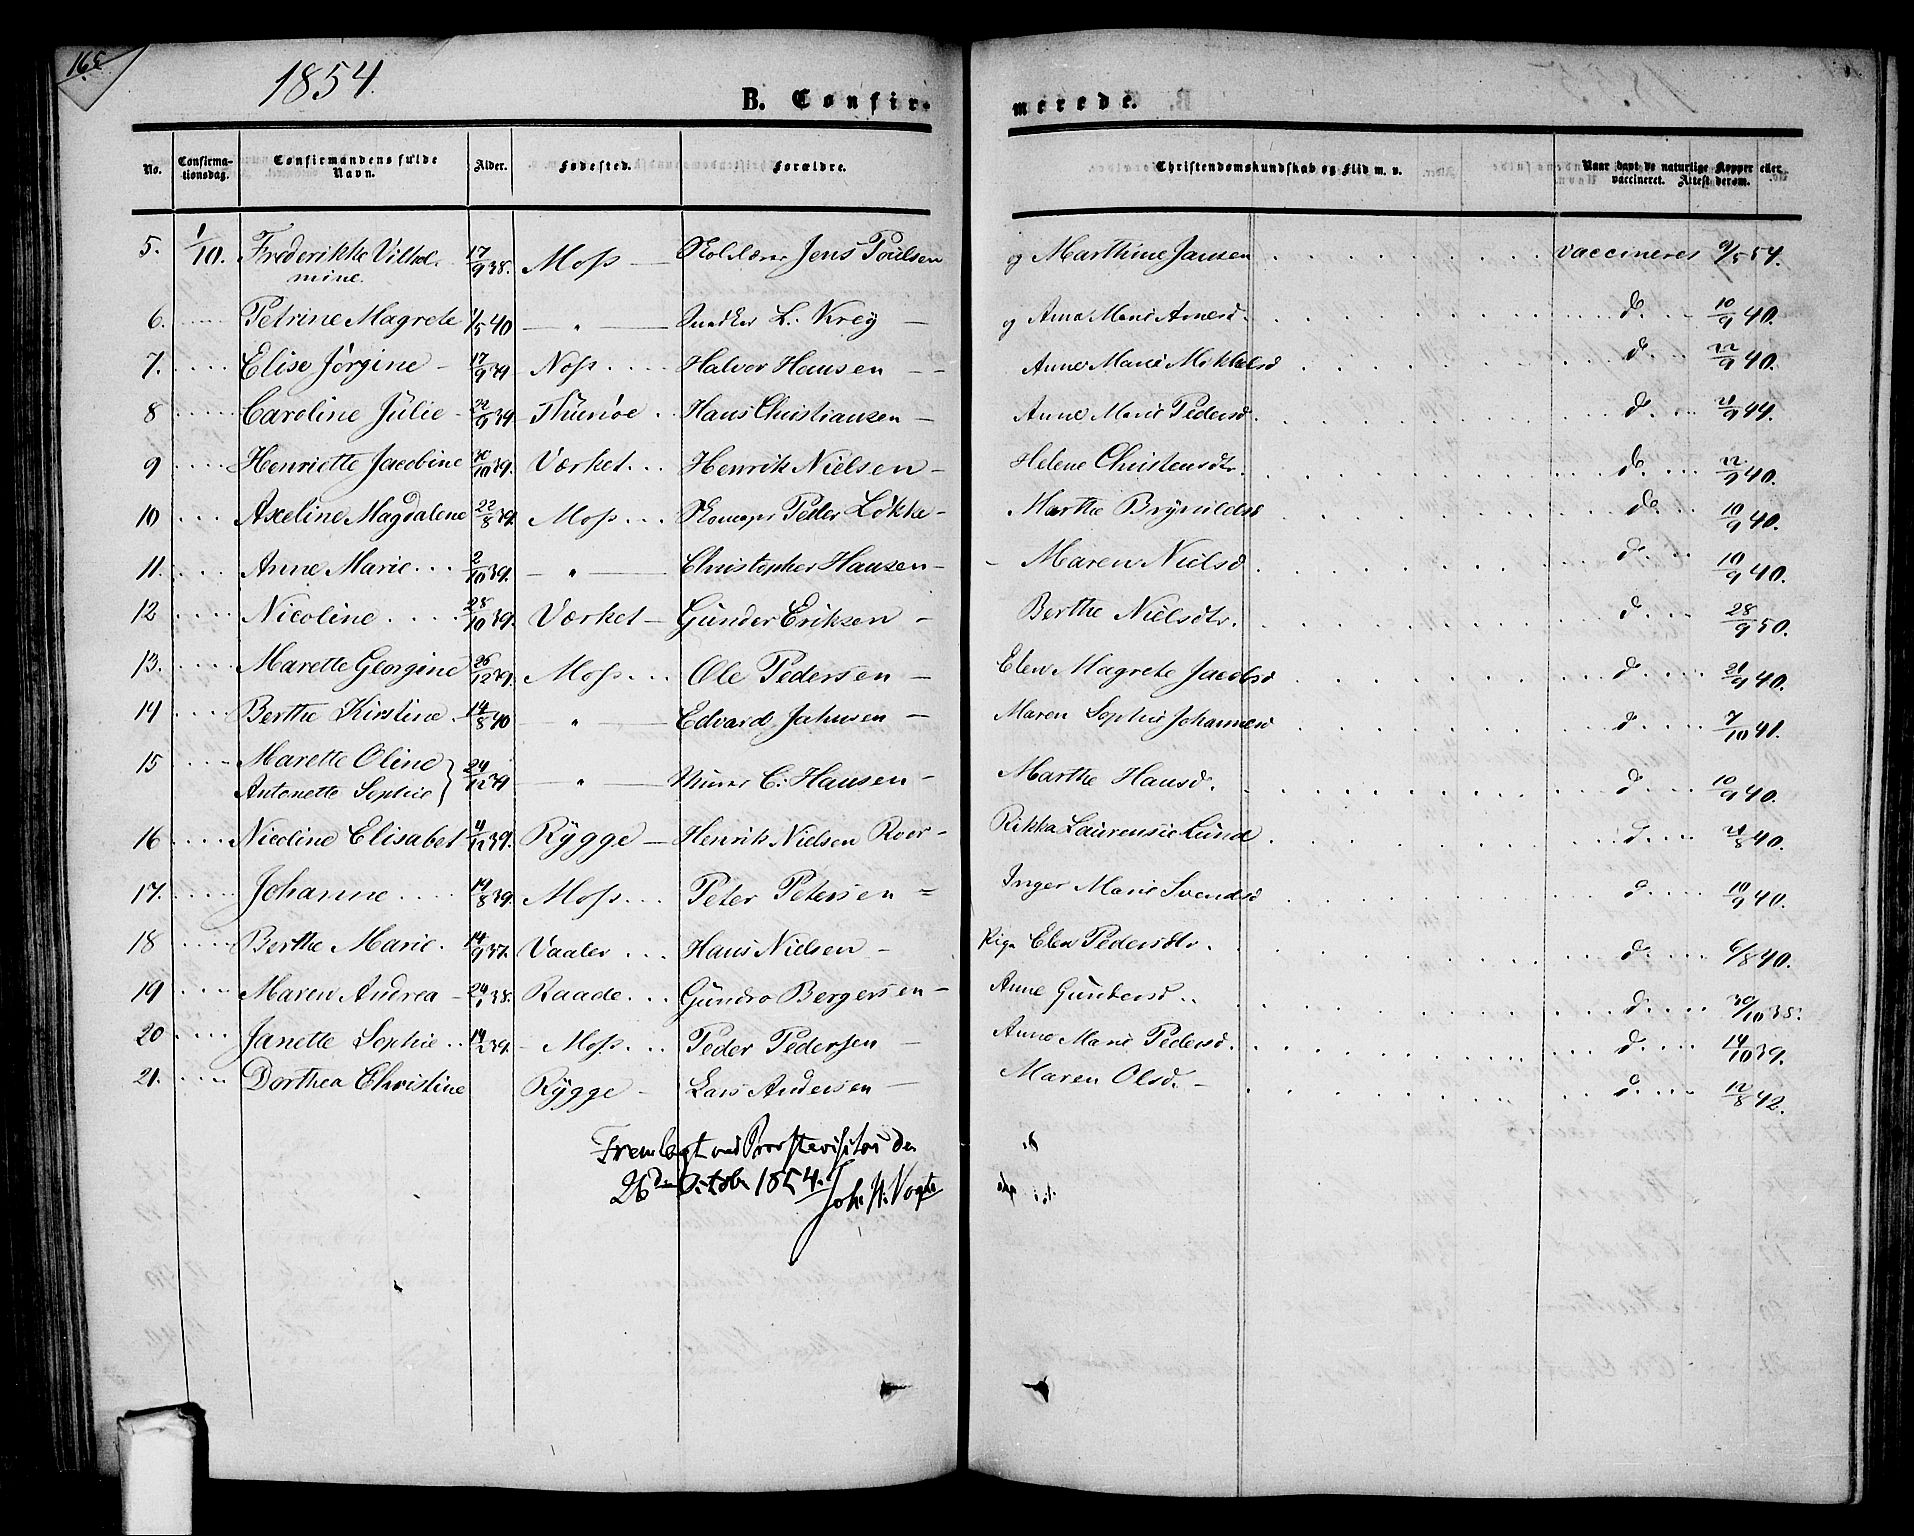 1854.
B. Confir-
merede.
No. Confirma-tionsdag. Confirmandens fulde Navn. Alder. Fødested. Forældre. Christendomskundskab og Flid m. v. Naar havt de naturlige Kopper eller vaccineret. Attest derom.
5. 1/10. Frederikke Vilhel- 17/9 38. Moss — Jens Poulsen og Marthine Jansen vaccineret 9/5 54.
mine.
6. Petrine Magrete 1/5 40 — " — Snedker L. Krey — og Anne Marie Arnesd. do 10/9 40.
7. Elise Jørgine - 17/9 39 Moss Halvor Hansen - - Anne Marie Mikkelsd d. 22/9 40.
8 Caroline Julie - 22/9 39. Hans Christiansen — Anne Marie Pedersd. d. 21/9 44.
9 Henriette Jacobine 30/10 39. Værket Henrik Nielsen - Helene Christensdtr. do. 22/9 40.
10 Axeline Magdalene 22/8 39. Moss Peder Løkke - Marthe Brynildsd do 10/9 40.
11. Anne Marie 2/10 39. — " — Christopher Hansen - Maren Nielsd. d. 10/9 40.
12 Nicoline 28/10 39. Værket — Gunder Eriksen - Berthe Nielsdtr. d. 28/9 50.
13. Marette Georgine 26/12 39. Moss Ole Pedersen - Elen Magrete Jacobsd d. 21/9 40.
14 Berthe Kirstine 14/8 40 — " — Edvard Jahnsen — Maren Sophie Johannesd d. 7/10 41.
15 Marette Oline
Antonette Sophie } 24/12 39 — " — Murer C. Hansen - Marthe Hansd. d. 10/9 40.
16 Nicoline Elisabet 4/12 39. Rygge — Henrik Nielsen Roer - Rikka Laurensie Lund d. 21/8 40.
17. Johanne 14/8 39. Moss Peter Petersen = Inger Marie Svendsd d. 10/9 40.
18 Berthe Marie. 14/9 37. Vaaler Hans Nielsen - Pige Elen Pedersdtr. d. 6/8 40.
19 Maren Andrea - 38. Raade Gundro Bergersen - Anne Gundersd d. 30/10 38.
20 Janette Sophie 14/2 39. - Moss Peder Pedersen - Anne Marie Pedersd. d. 14/10 39.
21. Dorthea Christine Rygge - Lars Andersen — Maren Olsd. - d. 12/8 42.
Fremlagt ved Provstevisitas den
26de October 1854.
Joh. St. Vogt